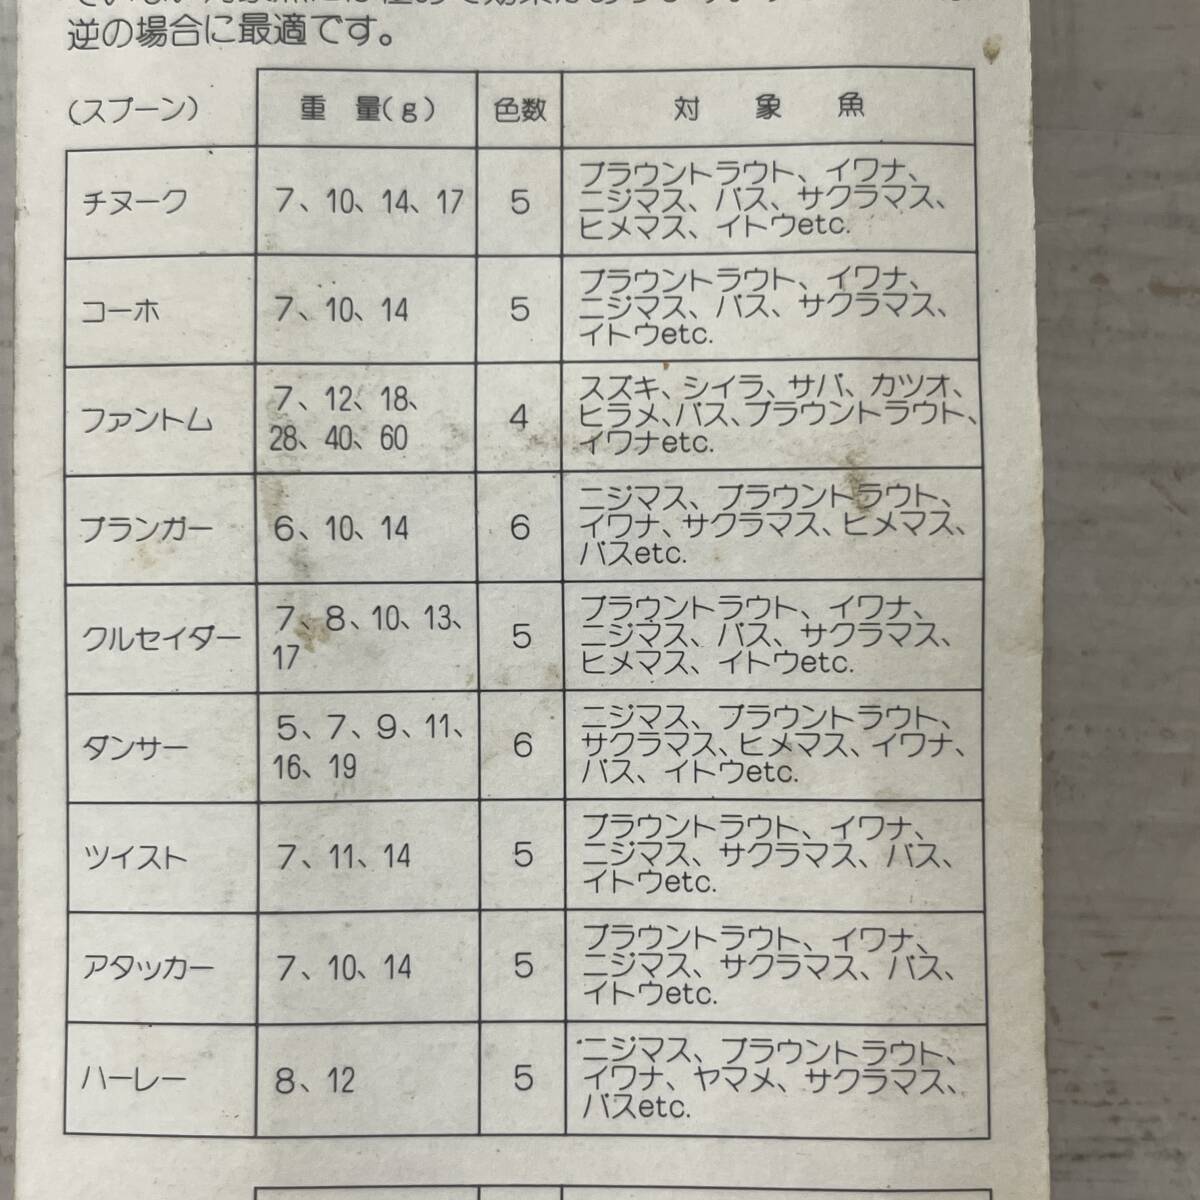 逆の場合に最適です。
(スプーン) 重 量(g) 色数 対 象 魚
チヌーク 7、10、14、17 5 ブラウントラウト、イワナ、
ニジマス、バス、サクラマス、
ヒメマス、イトウetc.
コーホ 7、10、14 5 ブラウントラウト、イワナ、
ニジマス、バス、サクラマス、
イトウetc.
ファントム 7、12、18、
28、40、60 4 スズキ、シイラ、サバ、カツオ、
ヒラメ、バス、ブラウントラウト、
イワナetc.
プランガー 6、10、14 6 ニジマス、ブラウントラウト、
イワナ、サクラマス、ヒメマス、
バスetc.
クルセイダー 7、8、10、13、
17 5 ブラウントラウト、イワナ、
ニジマス、バス、サクラマス、
ヒメマス、イトウetc.
ダンサー 5、7、9、11、
16、19 6 ニジマス、ブラウントラウト、
サクラマス、ヒメマス、イワナ、
バス、イトウetc.
ツイスト 7、11、14 5 ブラウントラウト、イワナ、
ニジマス、サクラマス、バス、
イトウetc.
アタッカー 7、10、14 5 ブラウントラウト、イワナ、
ニジマス、サクラマス、バス、
イトウetc.
ハーレー 8、12 5 ニジマス、ブラウントラウト、
イワナ、ヤマメ、サクラマス、
バスetc.